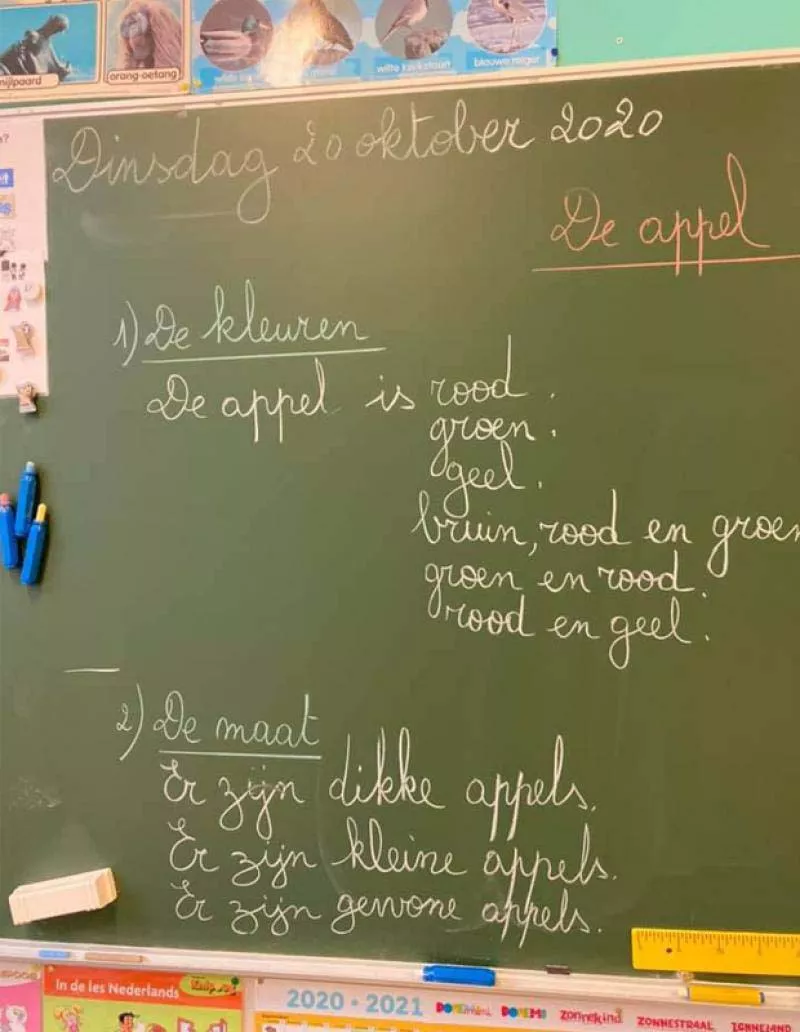 orang-oetang
witte kwikstaart
blauwe reiger
Dinsdag 20 oktober 2020
De appel
1) De kleuren
De appel is rood.
groen.
geel.
bruin, rood en groen
groen en rood.
rood en geel.
2) De maat
Er zijn dikke appels.
Er zijn kleine appels.
Er zijn gewone appels.
In de les Nederlands
2020 • 2021
DOREMINI
DOREMO
zonnekind
ZONNESTRAAL
ZONNELAND